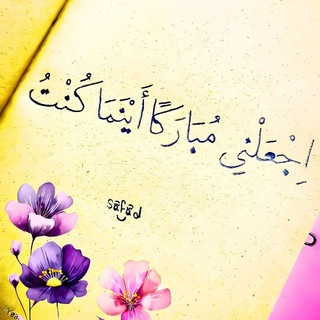 اِجْعَلْنِي مُبَارَكًا أَيْنَمَا كُنْتُ